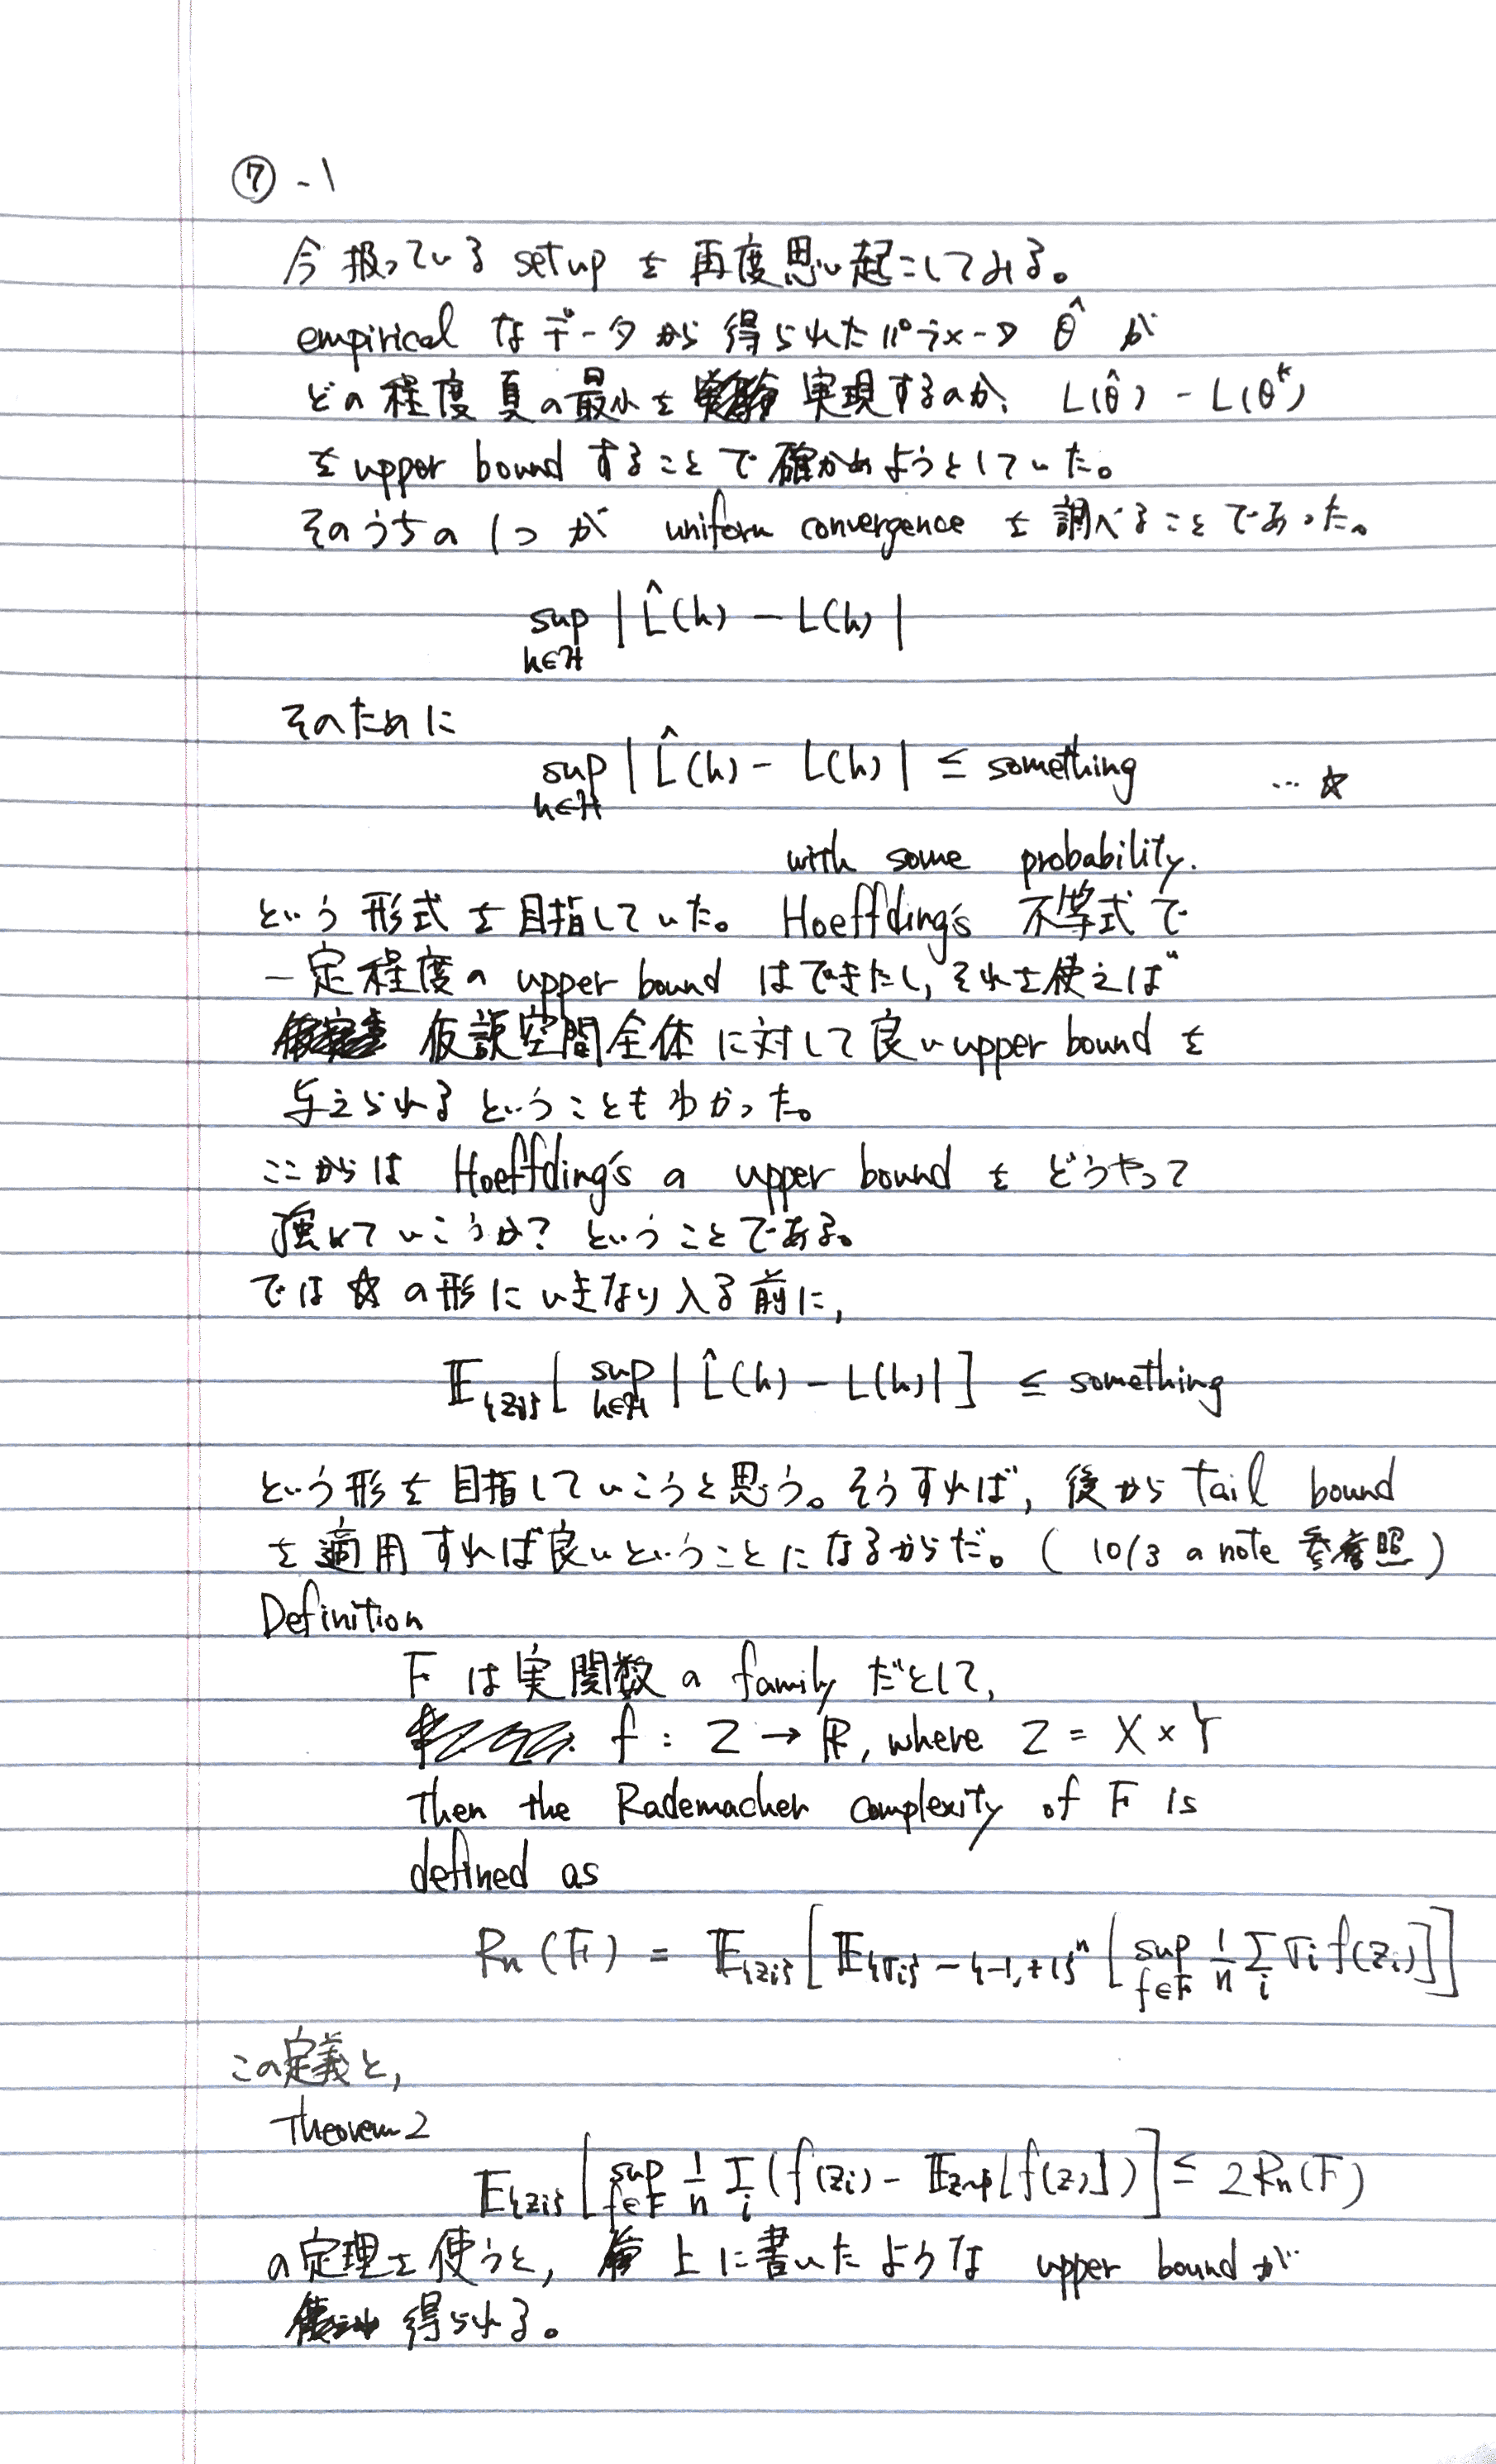 ⑦-1
今扱っている setup を再度思い起こしてみる。
empirical なデータから得られたパラメータ θ̂ が
どの程度真の最小を 実現するのか、 L(θ̂) - L(θ*)
を upper bound することで確かめようとしていた。
そのうちの1つが uniform convergence を調べることであった。
sup_{h∈ℋ} | L̂(h) - L(h) |
そのために
sup_{h∈ℋ} | L̂(h) - L(h) | ≤ something … ☆
with some probability.
という形式を目指していた。 Hoeffding's 不等式で
一定程度の upper bound はできたし, それを使えば
仮説空間全体に対して良い upper bound を
与えられるということもわかった。
ここからは Hoeffding's の upper bound を どうやって
強めていこうか? ということである。
では ☆ の形にいきなり入る前に,
𝔼_{{zi}} [ sup_{h∈ℋ} | L̂(h) - L(h) | ] ≤ something
という形を目指していこうと思う。そうすれば, 後から tail bound
を適用すれば良いということになるからだ。( 10/3 の note 参照 )
Definition
F は実関数の family だとして,
f : Z → ℝ, where Z = X × Y
Then the Rademacher complexity of F is
defined as
Rn(F) = 𝔼_{{zi}} [ 𝔼_{{σi} ~ {-1,+1}^n} [ sup_{f∈F} 1/n Σ_i σi f(zi) ] ]
この定義と,
Theorem 2
𝔼_{{zi}} [ sup_{f∈F} 1/n Σ_i ( f(zi) - 𝔼_{z~p}[f(z)] ) ] ≤ 2Rn(F)
の定理を使うと, 上に書いたような upper bound が
得られる。